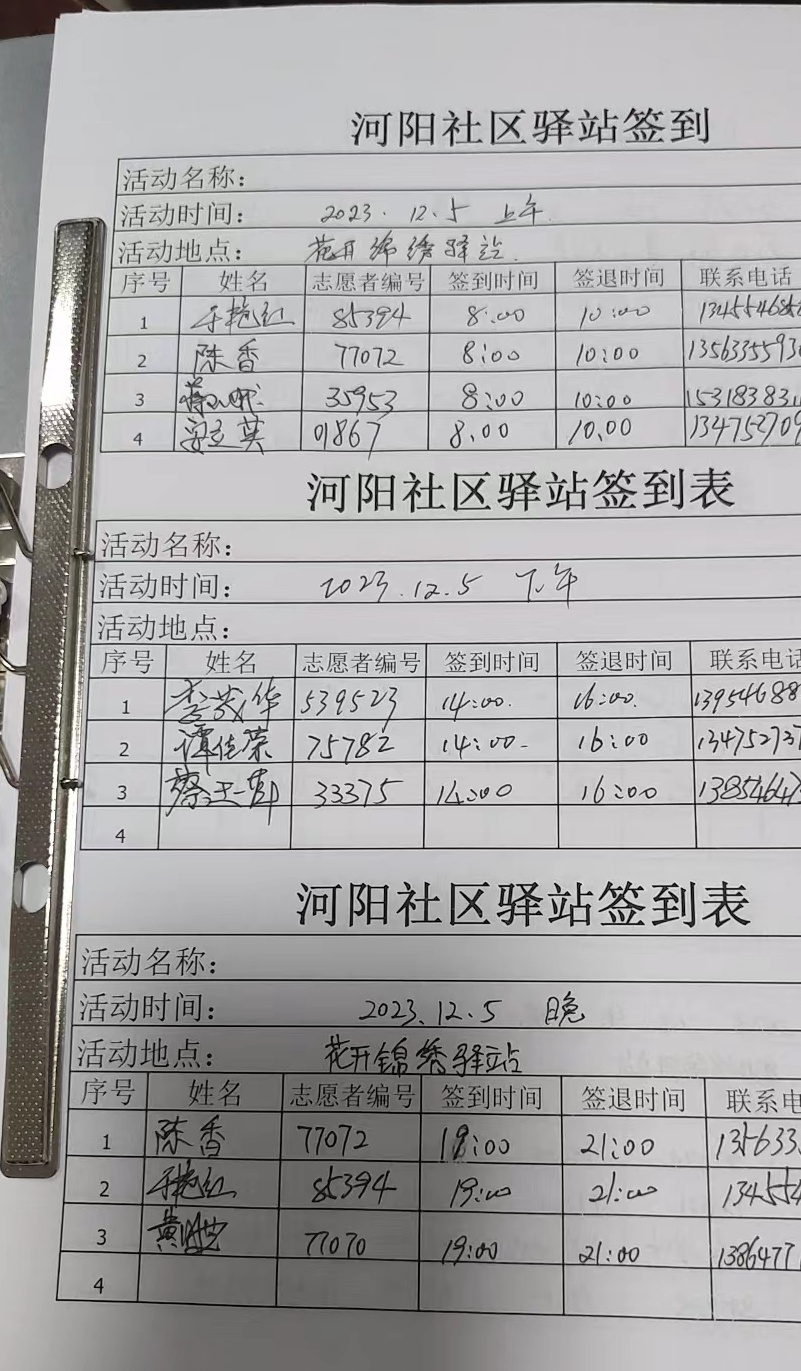 河阳社区驿站签到
活动名称：
活动时间： 2023. 12.5 上午
活动地点： 花开锦绣驿站
序号 姓名 志愿者编号 签到时间 签退时间 联系电话
1 于艳红 85394 8:00 10:00
2 陈香 77072 8:00 10:00 1356335593
3 35953 8:00 10:00 15318383
4 安立英 01867 8.00 10.00 134752709
河阳社区驿站签到表
活动名称：
活动时间： 2023.12.5 下午
活动地点：
序号 姓名 志愿者编号 签到时间 签退时间 联系电话
1 李茂华 539523 14:00. 16:00. 13954688
2 谭佳荣 75782 14:00- 16:00 134752737
3 33375 14:00 16:00 13854647
4
河阳社区驿站签到表
活动名称：
活动时间： 2023.12.5 晚
活动地点： 花开锦绣驿站
序号 姓名 志愿者编号 签到时间 签退时间 联系电
1 陈香 77072 18:00 21:00 135633
2 于艳红 85394 19:00 21:00 134554
3 77070 19:00 21:00 1386477
4